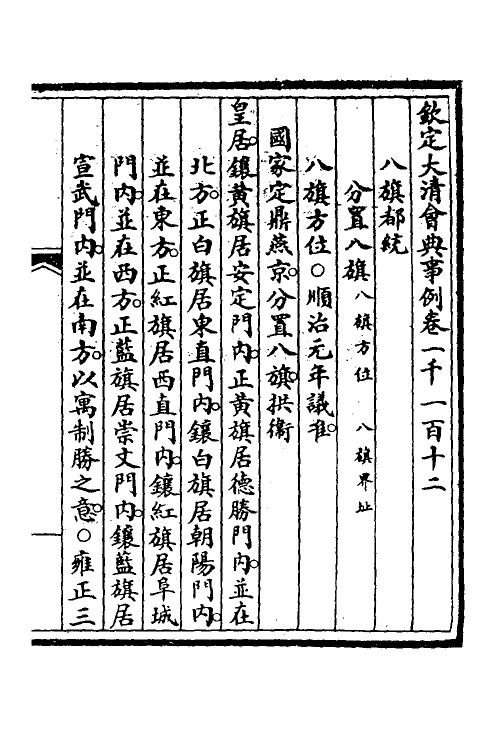 欽定大清會典事例卷一千一百十二
八旗都統
分置八旗八旗方位 八旗界址
八旗方位○順治元年議准。
國家定鼎燕京。分置八旗。拱衞
皇居。鑲黃旗居安定門內。正黃旗居德勝門內。並在
北方。正白旗居東直門內。鑲白旗居朝陽門內。
並在東方。正紅旗居西直門內。鑲紅旗居阜城
門內。並在西方。正藍旗居崇文門內。鑲藍旗居
宣武門內。並在南方。以寓制勝之意。○雍正三